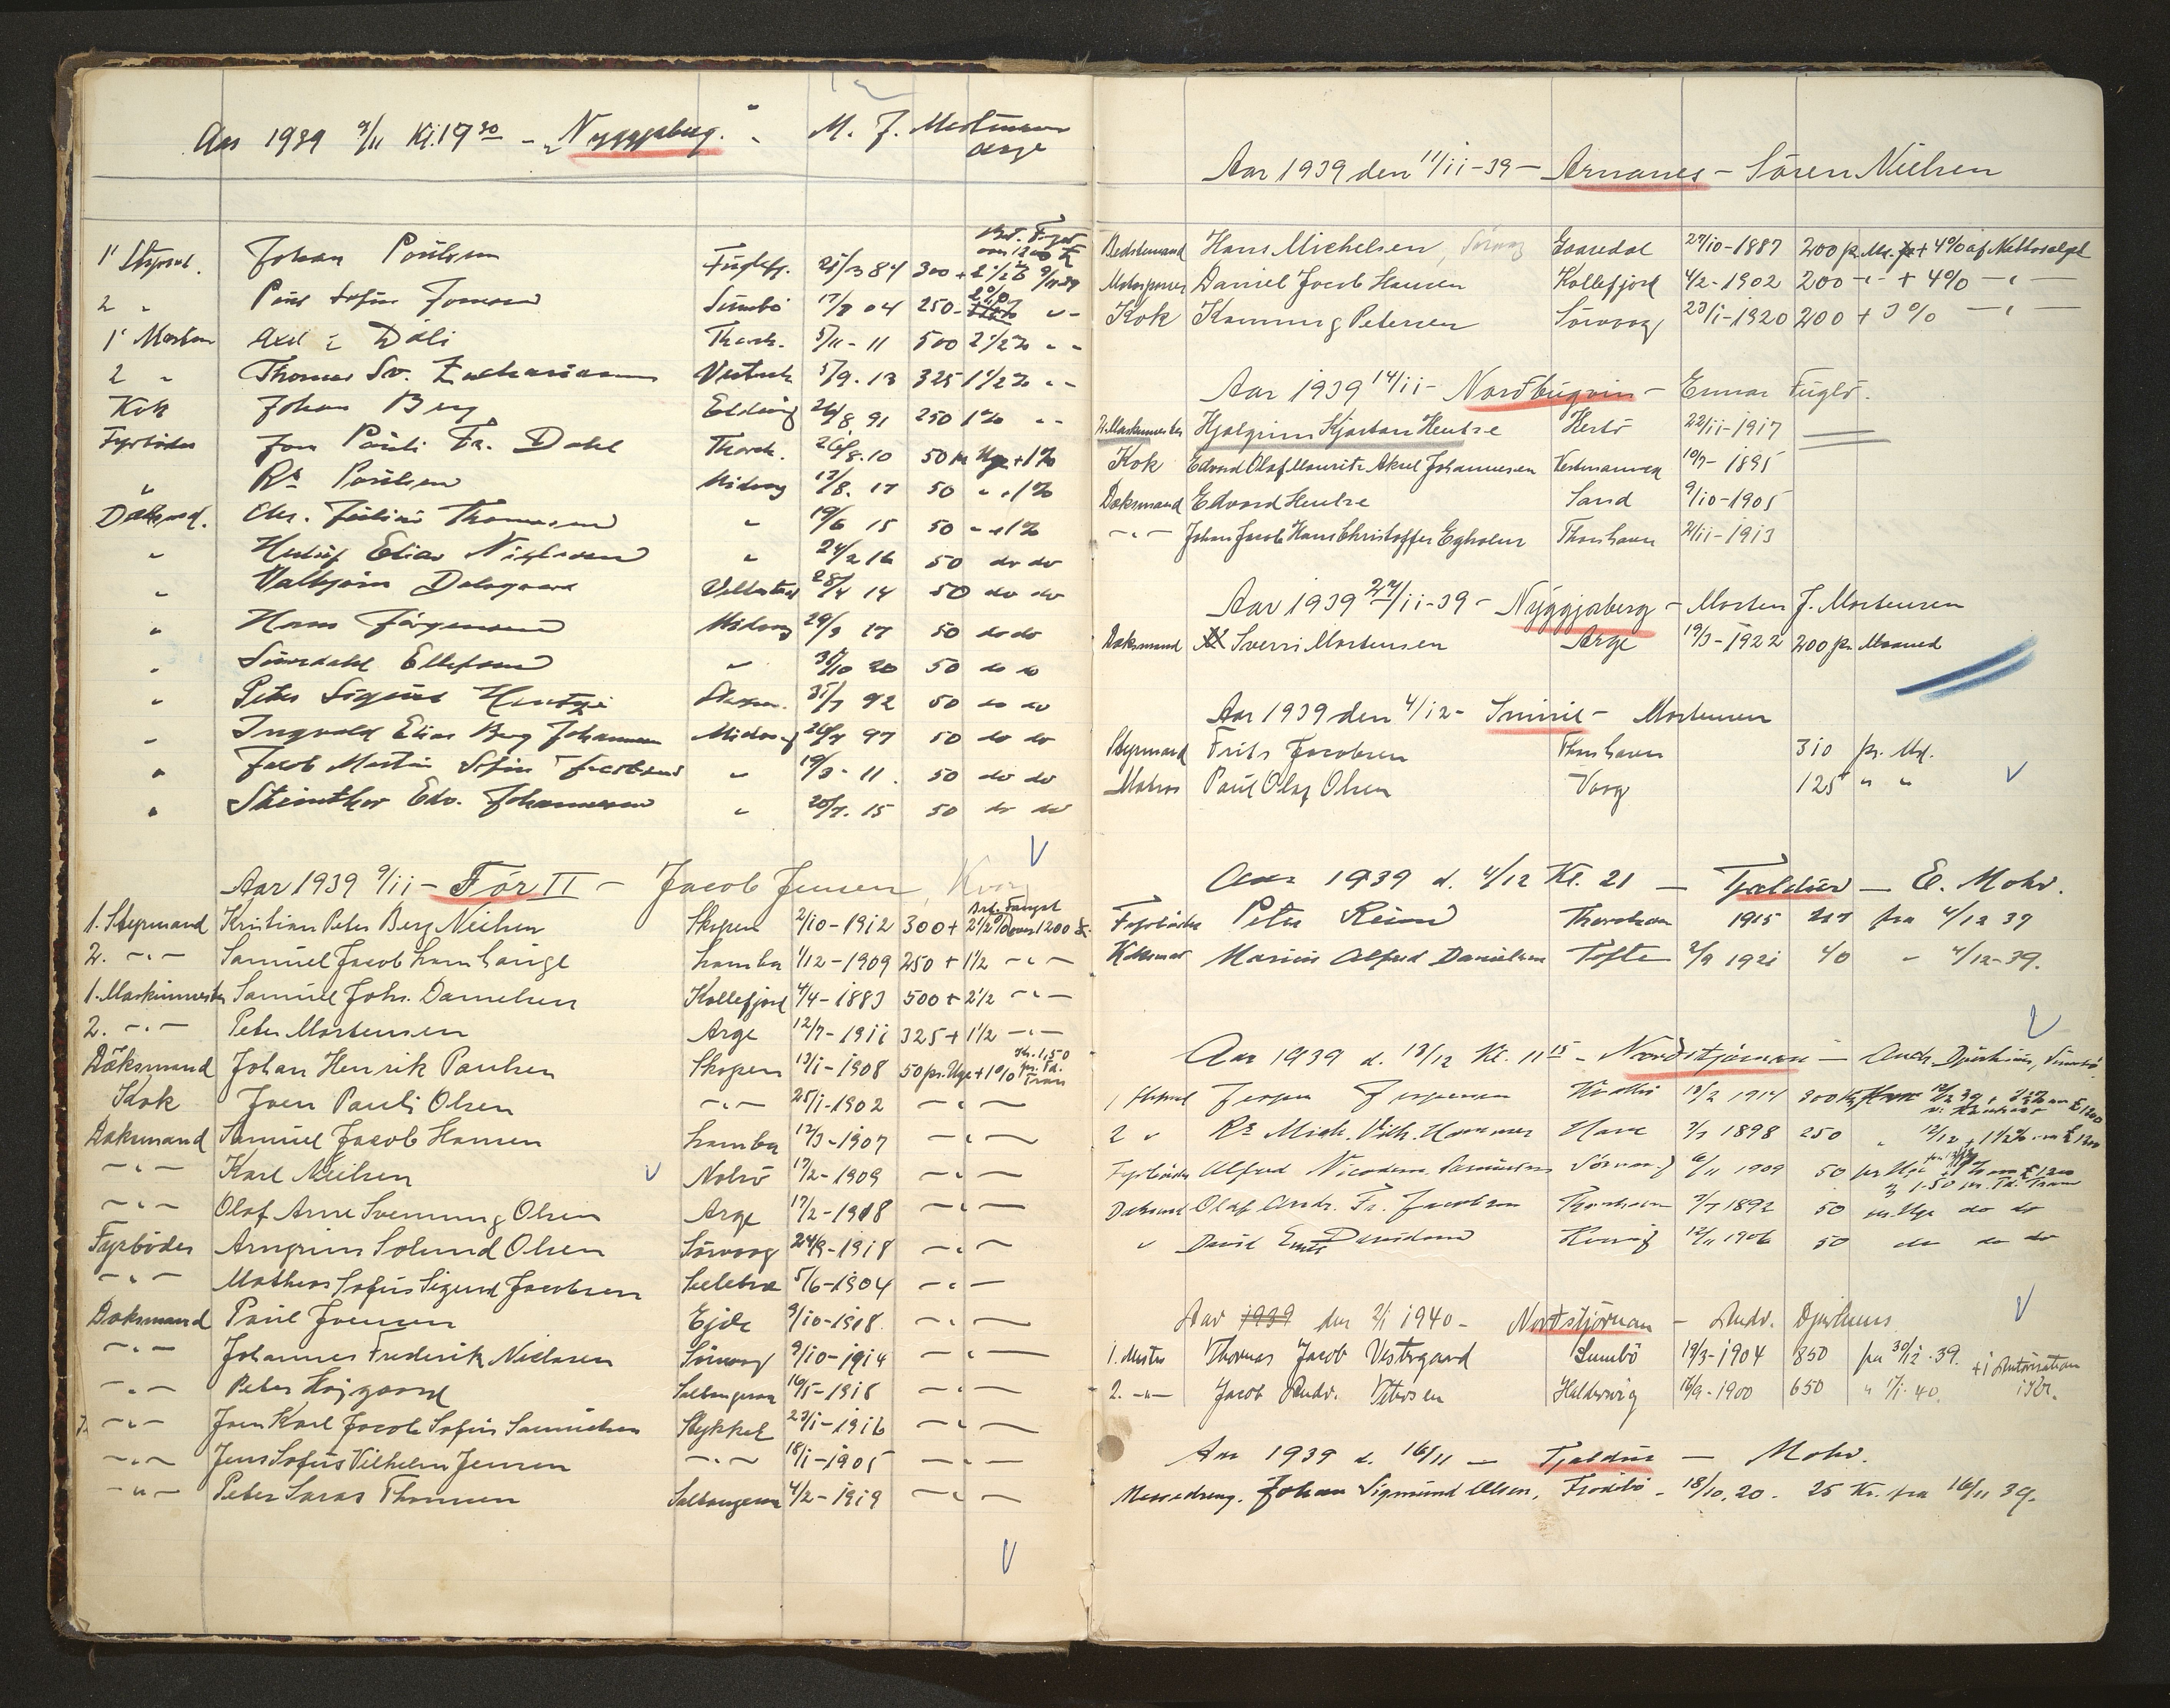 Aar 1939 9/11 Kl. 17 30 - "Nyggjaberg" - M. J. Mortensen
Arge
Brt. Fangst
over 1200 £
1' Styrmd. Johan Poulsen Fuglefj. 25/3 84 300 + 2 1/2 % 9/11 39
2 " Poul Sofus Joensen Sumbö 17/9 04 250 - 2 % " -
1' Mester Axel í Dali Thorsh. 5/11 - 11 500 2 1/2 % " -
2 " Thomas Sv. Zachariasen Vestmh 5/9. 13 325 1 1/2 % " -
Kok Johan Berg Eldevig 26/8 91 250 1 % " -
Fyrböder Jon Pauli Fr. Dahl Thorsh. 26/8. 10 50 pr Uge + 1 %
" Rs Poulsen Midvag 17/8. 17 50 " + 1 %
Däksmd. Chr. Julius Thomsen " 19/6 15 50 " + 1 %
" Elias Niclasen " 24/2 16 50 do do
" Valbjörn Dalsgaard Velbastad 28/4 14 50 do do
" Hans Jörgensen Midvag 29/9 17 50 do do
" Ellefsen " 31/10 20 50 do do
" Peter Sigurd Hentze 31/7 92 50 do do
" Ingvald Elias Berg Johannesen Midvag 26/7 97 50 do do
" Jacob Martin Sofus Jacobsen " 19/3 - 11. 50 do do
" Steinthor Edv. Johannesen " 20/7. 15 50 do do
Aar 1939 9/11 -För II - Jacob Jensen, Kvag
Brt. Fangst
1. Styrmand Kristian Peter Berg Nielsen Skopen 2/10 - 1912 300 + 2 1/2 % over 1200 £
2. - " - Samuel Jacob Lamhauge Lamba 1/12 - 1909 250 + 1 1/2 - " -
1. Maskinmester Samuel Johs. Danielsen Kollefjord 4/4 - 1883 500 + 2 1/2 - " -
2. - " - Peter Mortensen Arge 12/7 - 1911 325 + 1 1/2 - " -
Däksmand Johan Henrik Paulsen Skopen 13/1 - 1908 50 pr. Uge + 1 % Kr. 1,50 pr. Td. Tran
Kok Joen Pauli Olsen - " - 25/1 - 1902 - " -
Däksmand Samuel Jacob Hansen Lamba 12/3 - 1907 - " -
- " - Karl Nielsen Nolsö 17/2 - 1909 - " -
- " - Olaf Arne Svenning Olsen Arge 17/2 - 1918 - " -
Fyrböder Arngrim Solmund Olsen Sörvaag 24/9 - 1918 - " -
- " - Mathias Sofus Sigurd Jacobsen Selletræ 5/6 - 1904 - " -
Daksmand Paul Joensen Ejde 9/10 - 1918 - " -
- " - Johannes Frederik Niclasen Sörvaag 9/10 - 1914 - " -
- " - Peter Højgaard Saltangeraa 16/5 - 1918 - " -
- " - Joen Karl Jacob Sofus Samuelsen Stykket 23/1 - 1916 - " -
- " - Jens Sofus Vilhelm Jensen - " - 18/1 - 1905 - " -
- " - Peter Saras Thomsen Saltangeraa 4/2 - 1919 - " -
Aar 1939 den 11/11 - 39 - Arnanes - Sören Nielsen
Bedstemand Hans Michelsen, Sörvag Gaasedal 27/10 - 1887 200 pr. Md. + 4 % af Nettosalget
Motorpasser Daniel Jacob Hansen Kollefjord 4/2 - 1902 200 - " - + 4 % - " -
Kok Kamming Petersen Sörvaag 23/1 - 1920 200 + 3 % - " -
Aar 1939 14/11 - Nordbugvin - Ennar Fuglö.
II Maskinmester Hjalgrim Kjartan Hentze Hestö 22/11 - 1917
Kok Edvard Olaf Mouritz Aksel Johannesen Vestmanna 10/7 - 1895
Daksmand Edvard Hentze Sand 9/10 - 1905
- " - Johan Jacob Hans Christoffer Egholm Thorshavn 2/11 - 1913
Aar 1939 27/11 - 39 - Nyggjaberg - Morten J. Mortensen
Daksmand Sverri Mortensen Arge 19/3 - 1922 200 pr. Maaned
Aar 1939 den 4/12 - Smiril - Mortensen
Styrmand Frits Jacobsen Thorshavn 310 pr. Md.
Matros Paul Olaf Olsen Vaag 125 " "
Aar 1939 d. 4/12 Kl. 21 - Tjaldur - E. Mohr.
Fyrböder Peter Reims Thorshavn 1915 217 fra 4/12 39
Marius Alfred Danielsen Tofte 2/9 1921 40 " 4/12 - 39.
Aar 1939 d. 13/12 Kl. 11 15 - Nordstjörnan - Andr. Djurhuus, Sumbö.
1 Styrmd Jespersen 13/2 1914 300 Kr 12/12 39 + 2 1/2 % over £ 1200
2 " Rs Mich. Vilh. Hammer 3/7 1898 250 " 12/12 + 1 1/2 % over £ 1200
Fyrböder Alfred Nicodemus Samuelsen Sörvaag 6/11 1909 50 pr Uge + 1 % over £ 1200
og 1.50 pr. Td. Tran
Daksmd Olaf Andr. Fr. Jacobsen Thorshavn 3/7 1892 50 pr. Uge do do
" David Emil Davidsen Kvivig 12/11 1906 50 do do do
Aar 1939 den 2/1 1940 - Nordstjörnan - Andr. Djurhuus
1. Mester Thomas Jacob Vestergaard Sumbö 19/3 - 1904 850 fra 30/12 - 39. + i Autorisation
2. - " - Jacob Andr. Petersen Haldersvig 16/9 - 1900 650 " 1/1 - 40. 1 Kr.
Aar 1939 d. 16/11 - Tjaldur - Mohr.
Messedreng. Johan Sigmund Olsen, Frodebö - 18/10. 20 - 25 Kr. fra 16/11 39.